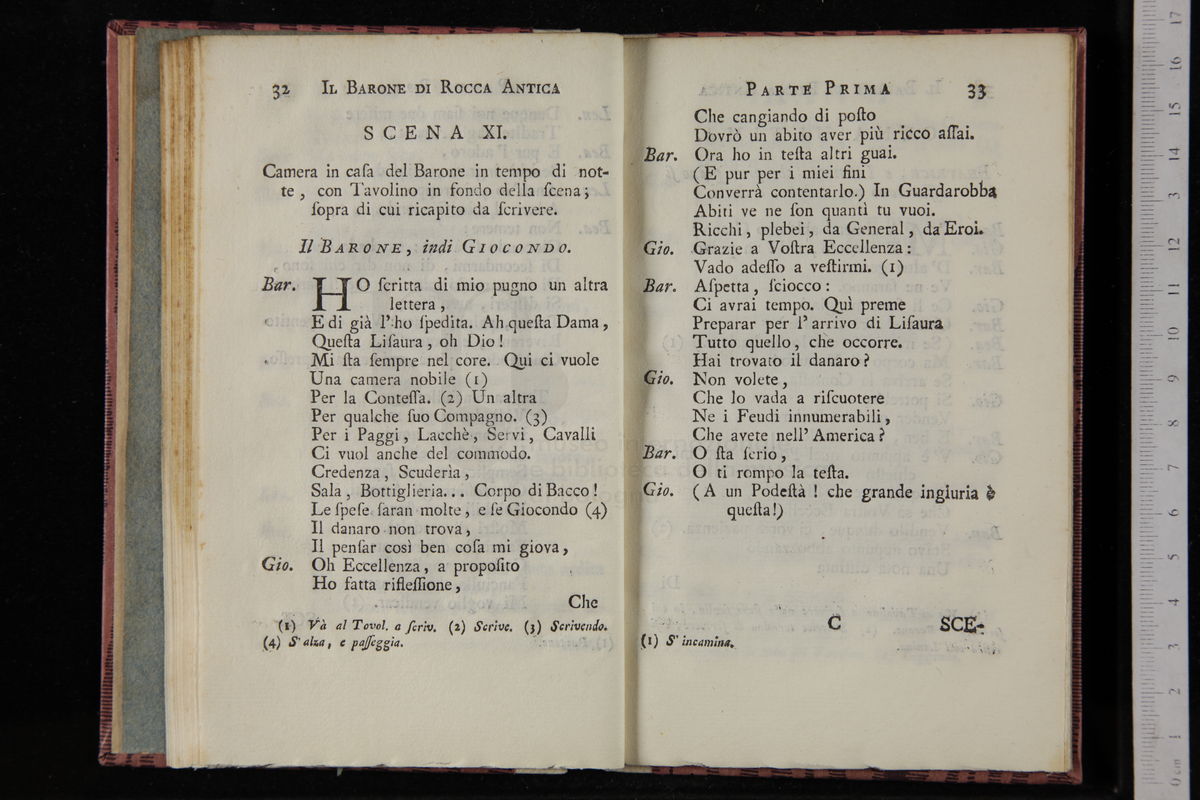 32 IL BARONE DI ROCCA ANTICA
SCENA XI.
Camera in caſa del Barone in tempo di not-
te , con Tavolino in fondo della ſcena ;
ſopra di cui ricapito da ſcrivere.
Il BARONE, indi GIOCONDO.
Bar. HO ſcritta di mio pugno un altra
lettera ,
E di già l'ho ſpedita. Ah queſta Dama ,
Queſta Liſaura , oh Dio !
Mi ſta ſempre nel core. Qui ci vuole
Una camera nobile (1)
Per la Conteſſa. (2) Un altra
Per qualche ſuo Compagno. (3)
Per i Paggi , Lacchè , Servi , Cavalli
Ci vuol anche del commodo.
Credenza , Scuderìa ,
Sala , Bottiglieria... Corpo di Bacco !
Le ſpeſe ſaran molte , e ſe Giocondo (4)
Il danaro non trova ,
Il penſar così ben coſa mi giova ,
Gio. Oh Eccellenza , a propoſito
Ho fatta rifleſſione ,
Che
(1) Và al Tovol. a ſcriv. (2) Scrive. (3) Scrivendo.
(4) S' alza , e paſſeggia.
PARTE PRIMA 33
Che cangiando di poſto
Dovrò un abito aver più ricco aſſai.
Bar. Ora ho in teſta altri guai.
( E pur per i miei fini
Converrà contentarlo.) In Guardarobba
Abiti ve ne ſon quanti tu vuoi.
Ricchi , plebei , da General , da Eroi.
Gio. Grazie a Voſtra Eccellenza :
Vado adeſſo a veſtirmi. (1)
Bar. Aſpetta , ſciocco :
Ci avrai tempo. Quì preme
Preparar per l' arrivo di Liſaura
Tutto quello , che occorre.
Hai trovato il danaro ?
Gio. Non volete ,
Che lo vada a riſcuotere
Ne i Feudi innumerabili ,
Che avete nell' America ?
Bar. O ſta ſerio ,
O ti rompo la teſta.
Gio. ( A un Podeſtà ! che grande ingiuria è
queſta !)
C SCE-
(1) S' incamina.